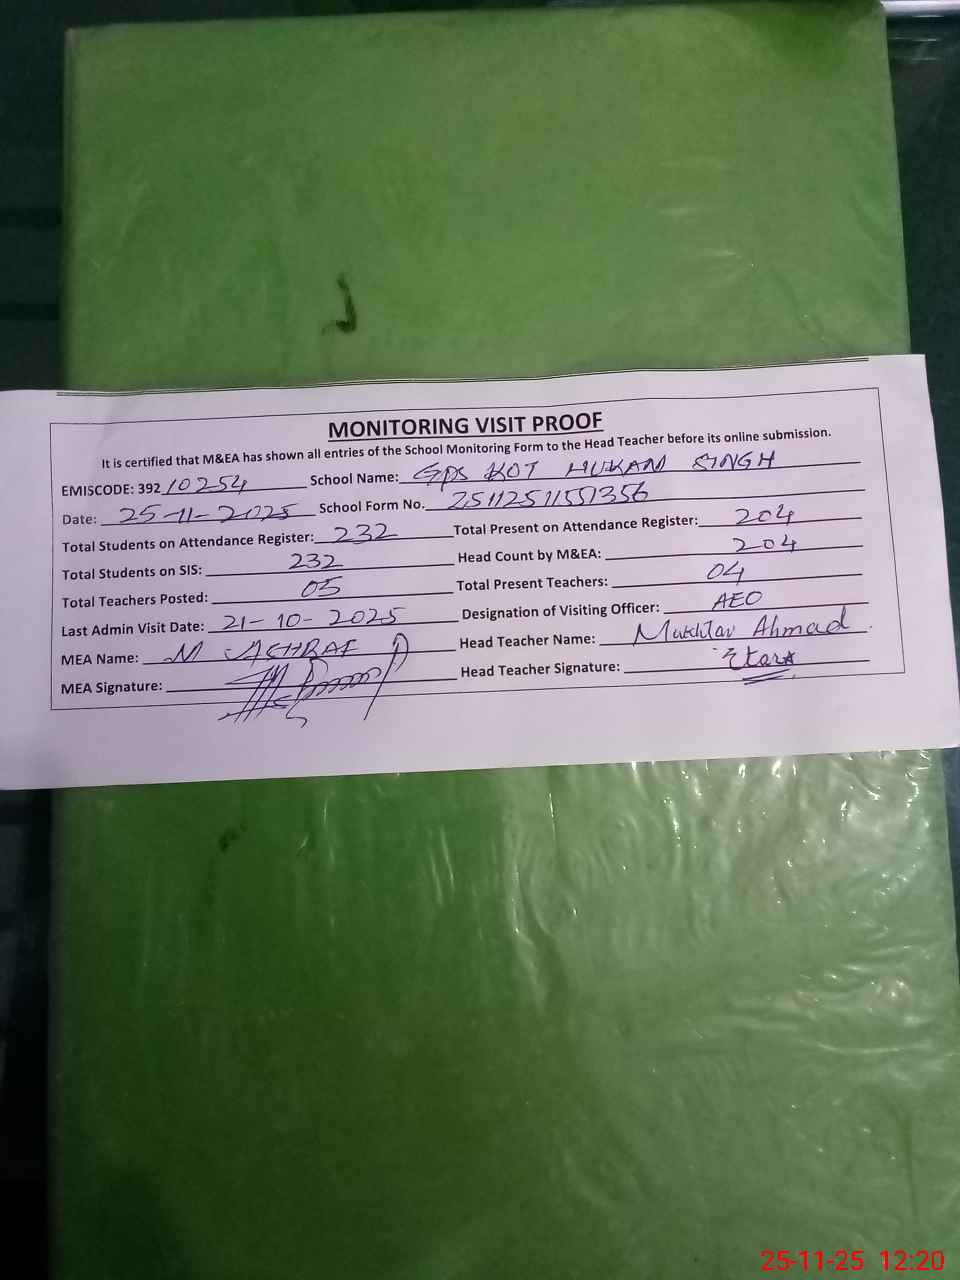 MONITORING VISIT PROOF
It is certified that M&EA has shown all entries of the School Monitoring Form to the Head Teacher before its online submission.
EMISCODE: 392 10254 School Name: GPS KOT HUKAM SINGH
Date: 25-11-2025 School Form No. 25112511551356
Total Students on Attendance Register: 232 Total Present on Attendance Register: 204
Total Students on SIS: 232 Head Count by M&EA: 204
Total Teachers Posted: 05 Total Present Teachers: 04
Last Admin Visit Date: 21-10-2025 Designation of Visiting Officer: AEO
MEA Name: M ASHRAF Head Teacher Name: Mukhtar Ahmad
MEA Signature: Head Teacher Signature:
25-11-25 12:20